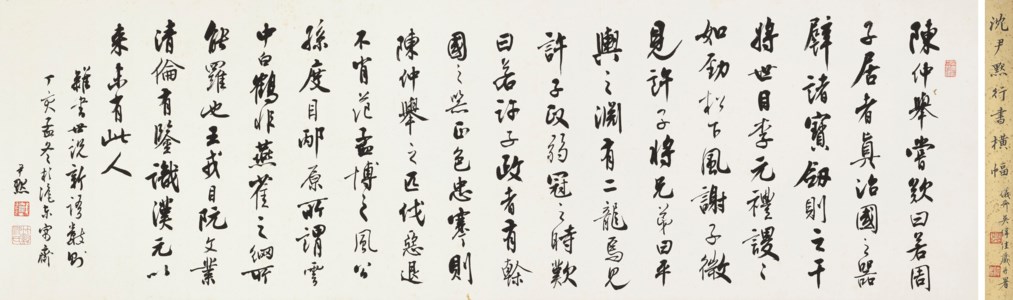 沈尹默行書橫幅
陳仲舉嘗歎曰若周
子居者真治國之器
譬諸寶劍則之干
將世目李元禮謖〻
如勁松下風謝子微
見許子將兄弟曰平
輿之淵有二龍焉見
許子政弱冠之時歎
曰若許子政者有榦
國之器正色忠謇則
陳仲舉之匹伐惡退
不肖范孟博之風公
孫度目邴原所謂雲
中白鶴非燕雀之網所
能羅也王戎目阮文業
清倫有鑒識漢元以
來未有此人
雜書世說新語數則
丁亥孟冬於滬東寓齋
尹默